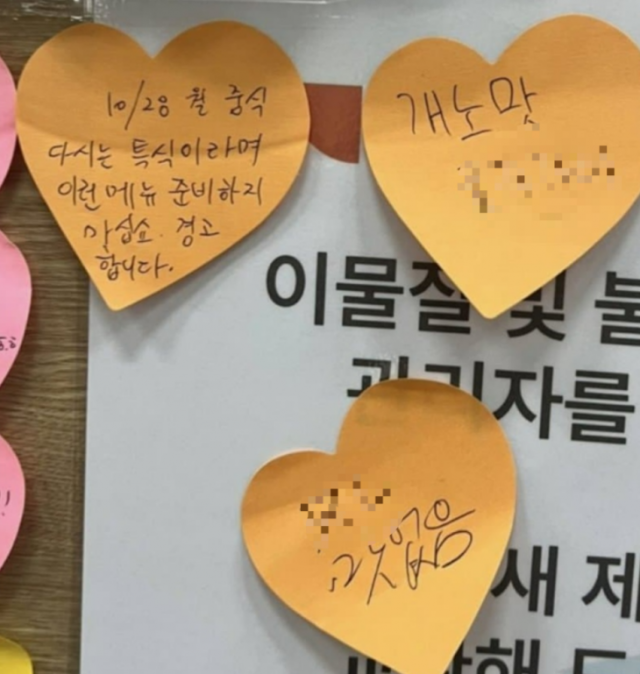 10/28 월 중식
다시는 특식이라며
이런 메뉴 준비하지
마십쇼. 경고
합니다.
개노맛
이물질 및 불
관리자를
새 제